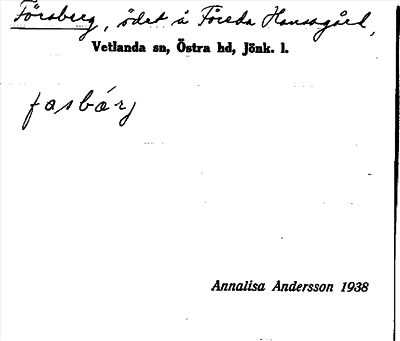 Forsberg, ödet åFöreda Hansagård,
Vetlanda sn, Östra hd, Jönk. l.
fasbárj
Annalisa Andersson 1938